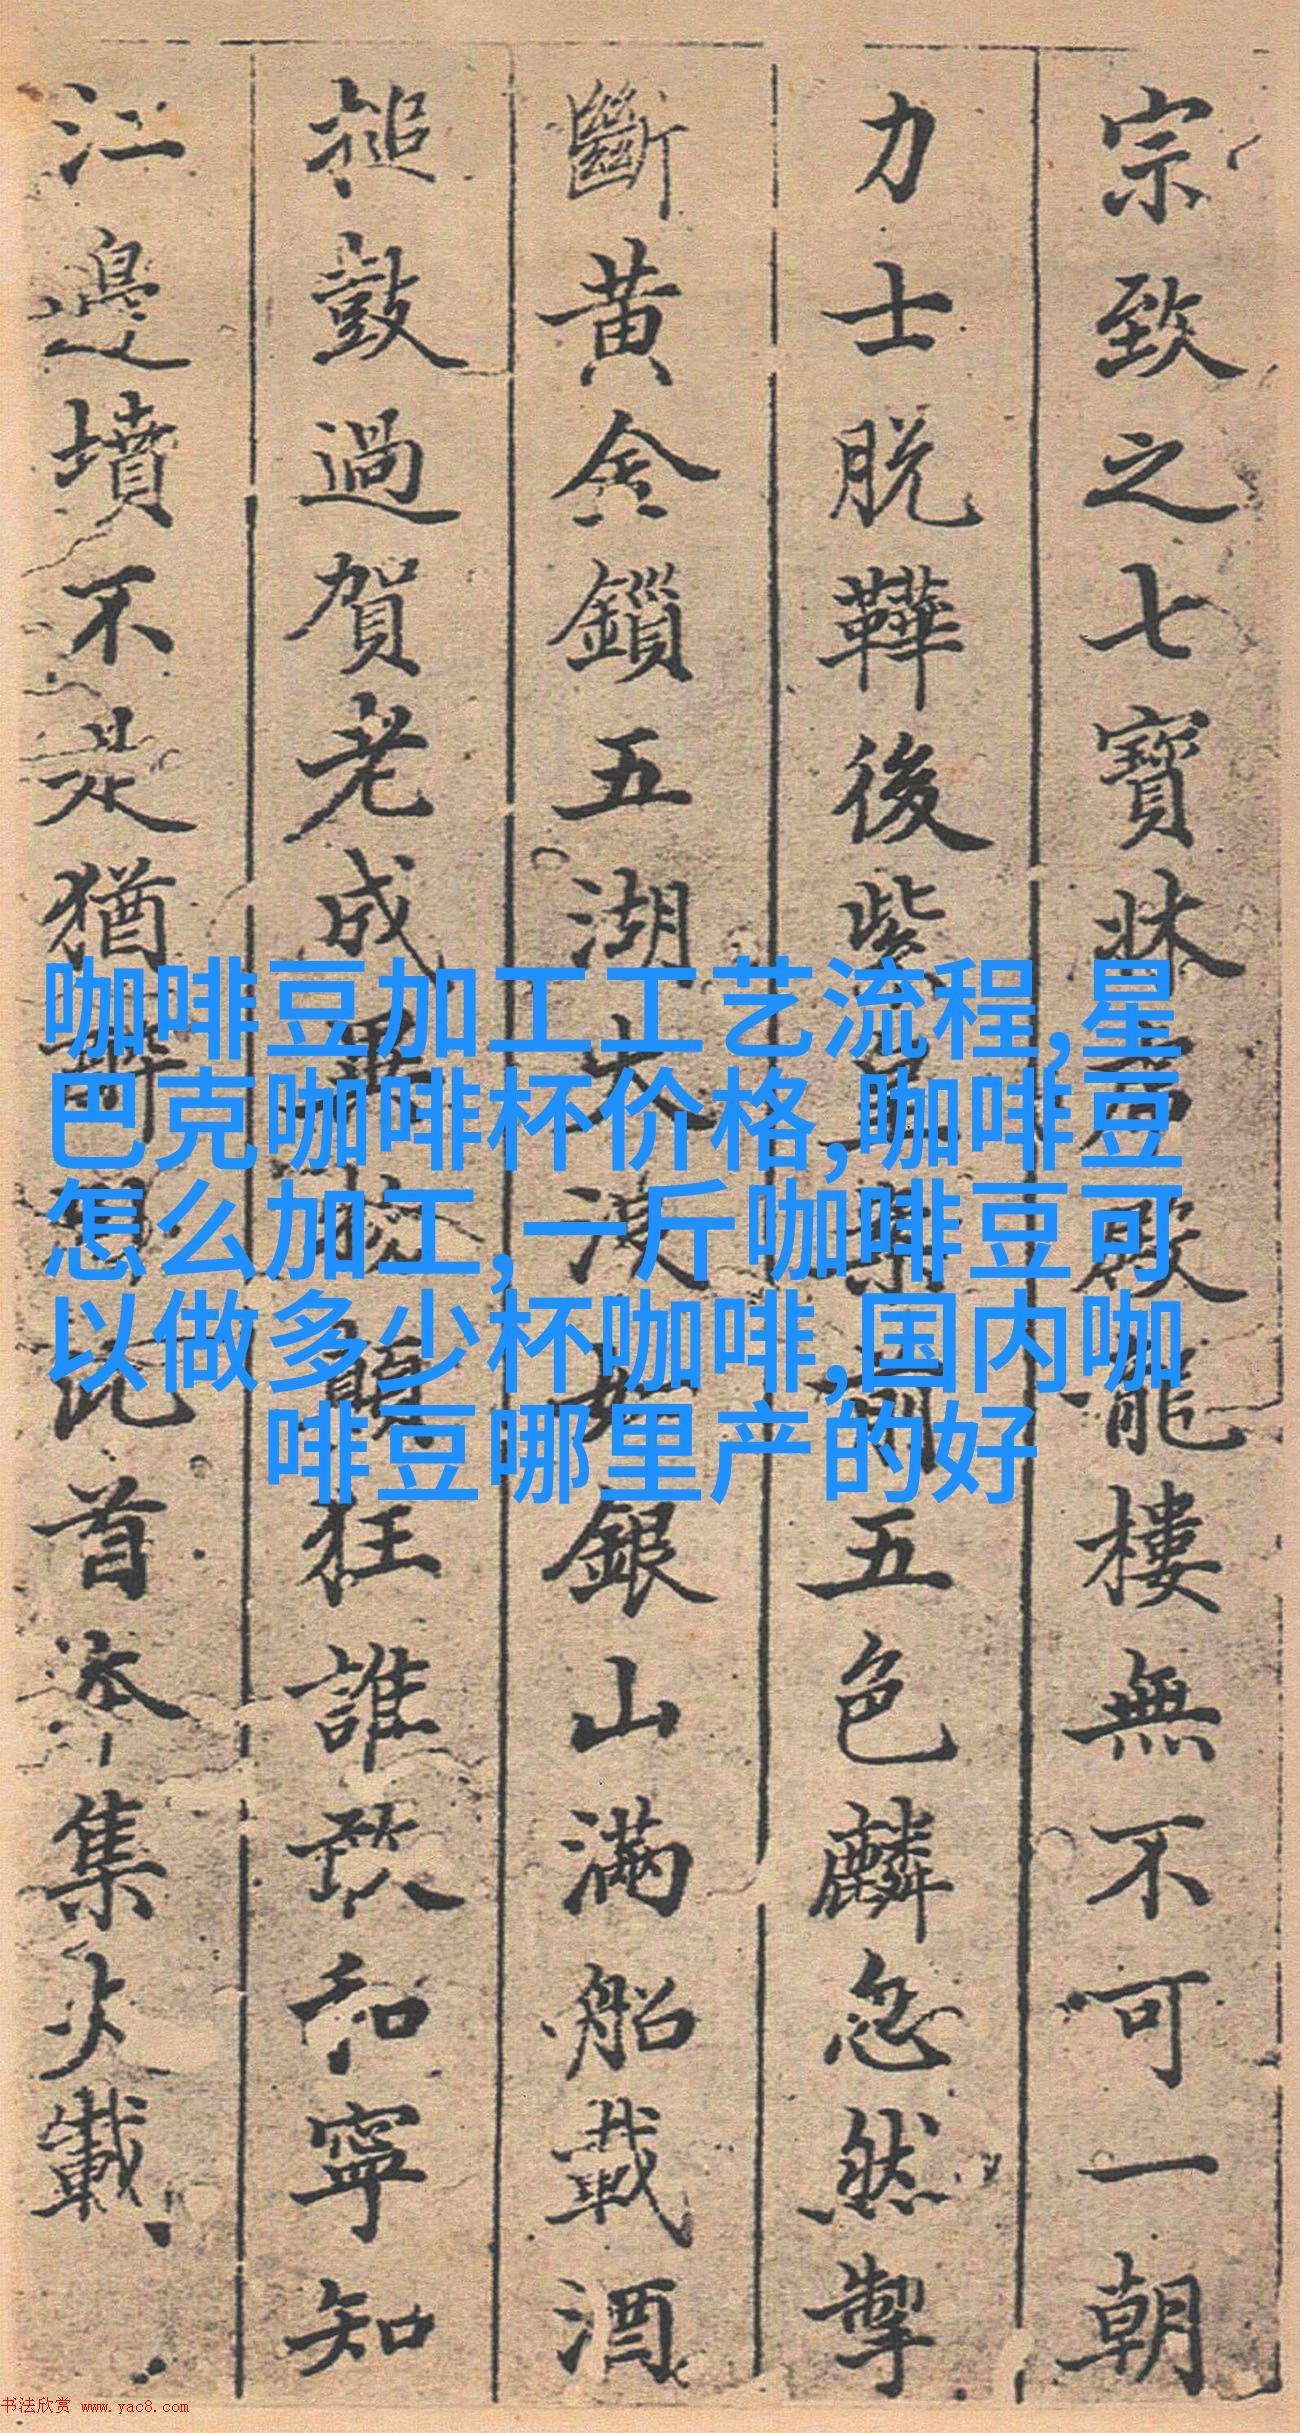 宗致之七寶牀
龍樓無不可一朝
力士脱鞾後紫
五色麟忽然掣
斷黃金鎖五湖大浪如銀山滿船載酒
搥鼓過賀老成
狂誰敢和寧知
江邊墳不是猶
此首本集不載
咖啡豆加工工艺流程,星
巴克咖啡杯价格,咖啡豆
怎么加工,一斤咖啡豆可
以做多少杯咖啡,国内咖
啡豆哪里产的好
书法欣赏 www.yac8.com